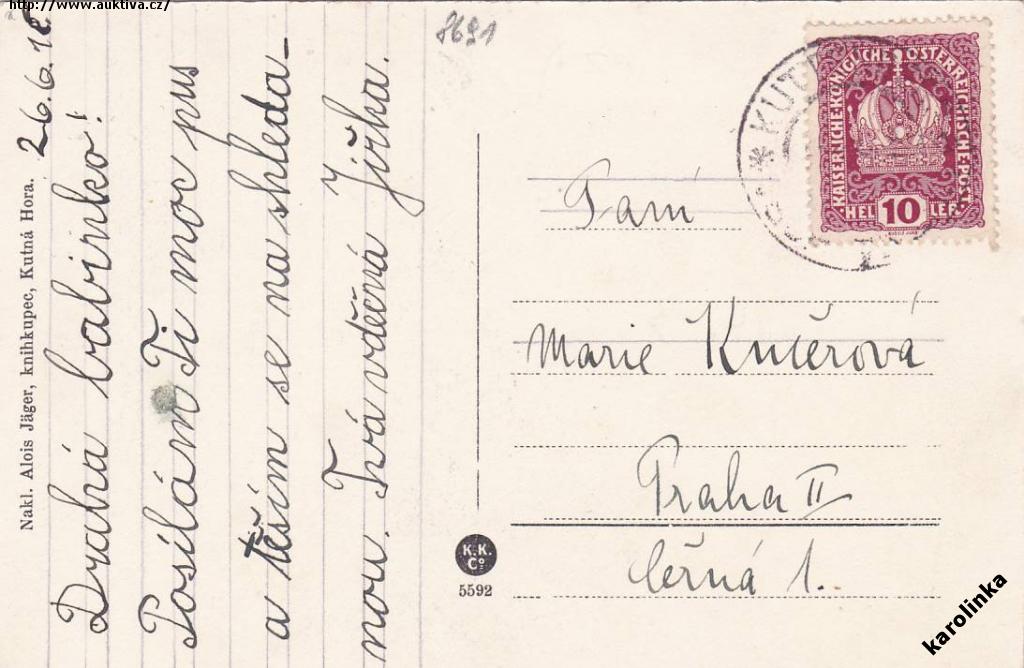 http://www.auktiva.cz/
8691
Nakl. Alois Jäger, knihkupec, Kutná Hora.
26.6.18
Drahá babinko!
Posílám Ti moc pus
a těším se na shleda-
nou. Tvá vděčná Jiřka.
KAISERLICHE KÖNIGLICHE ÖSTERREICHISCHE POST
HELLER 10
KUT
Paní
Marie Kučerová
Praha II
Černá 1.
K.K.
Co
5592
karolinka